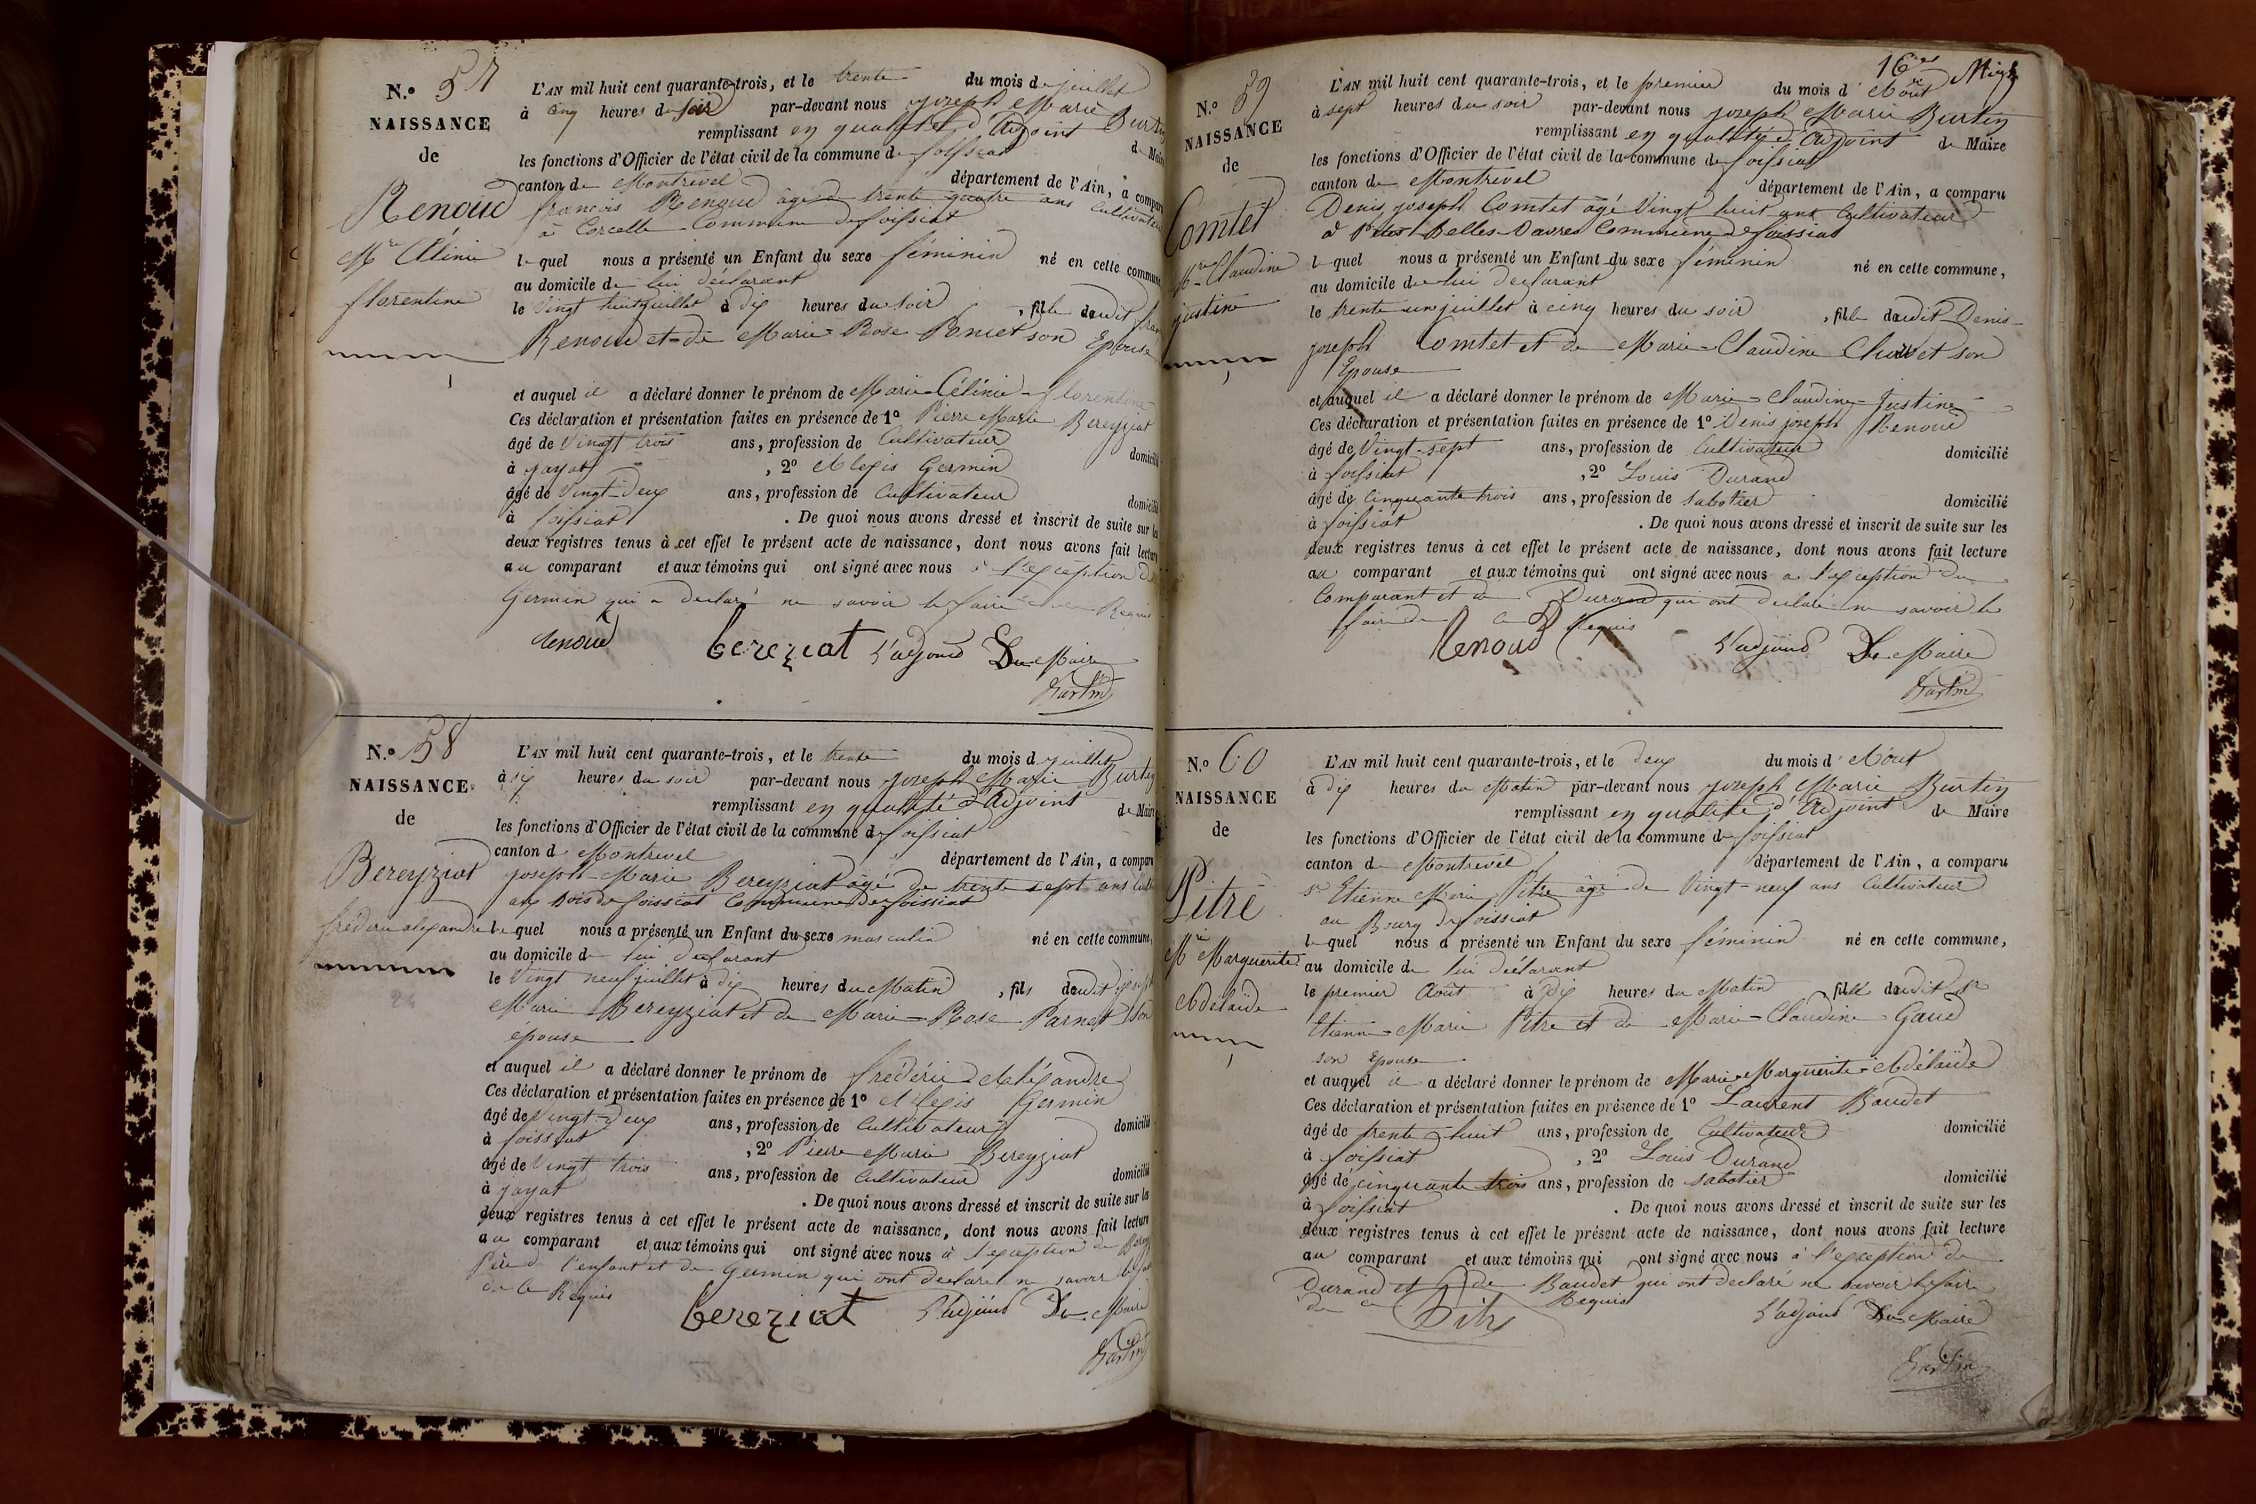 N.º 57
NAISSANCE
de
Renoud
Mie Célinie
florentine
L'AN mil huit cent quarante-trois, et le trente du mois de juillet
à cinq heures du soir par-devant nous joseph Marie Burtin
remplissant en qualité d'Adjoint de Maire
les fonctions d'Officier de l'état civil de la commune de foissiat
canton de Montrevel département de l'Ain, a comparu
francois Renoud âgé de trente quatre ans Cultivateur
à Corcelle Commune de foissiat
lequel nous a présenté un Enfant du sexe féminin né en cette commune
au domicile de lui déclarant
le Vingt huit juillet à dix heures du soir , fille dudit fran
Renoud et de Marie Rose Poncet son Epouse
et auquel il a déclaré donner le prénom de Marie Célinie florentine
Ces déclaration et présentation faites en présence de 1º Pierre Marie Bereyziat
âgé de Vingt trois ans, profession de Cultivateur domicilié
à jayat , 2º Alexis Germin
âgé de Vingt-Deux ans, profession de Cultivateur domicilié
à foissiat . De quoi nous avons dressé et inscrit de suite sur les
deux registres tenus à cet effet le présent acte de naissance, dont nous avons fait lecture
au comparant et aux témoins qui ont signé avec nous à l'exception de
Germin qui a declaré ne savoir le faire de ce Requis
Renoud bereziat L'adjoint De Maire
Burtin
N.º 58
NAISSANCE
de
Bereyziat
frédéric alexandre
L'AN mil huit cent quarante-trois, et le trente du mois de juillet
à six heures du soir par-devant nous joseph Marie Burtin
remplissant en qualité d'Adjoint de Maire
les fonctions d'Officier de l'état civil de la commune de foissiat
canton de Montrevel département de l'Ain, a comparu
joseph-Marie Bereyziat âgé de trente sept ans Cult
aux bois de foissiat Commune de foissiat
lequel nous a présenté un Enfant du sexe masculin né en cette commune,
au domicile de lui declarant
le Vingt neuf juillet à dix heures du Matin , fils dudit joseph
Marie Bereyziat et de Marie-Rose Parnet son
épouse
et auquel il a déclaré donner le prénom de frédéric Alexandre
Ces déclaration et présentation faites en présence de 1º Alexis Germin
âgé de Vingt-Deux ans, profession de Cultivateur domicilié
à foissiat , 2º Pierre Marie Bereyziat
âgé de Vingt trois ans, profession de Cultivateur domicilié
à jayat . De quoi nous avons dressé et inscrit de suite sur les
deux registres tenus à cet effet le présent acte de naissance, dont nous avons fait lecture
au comparant et aux témoins qui ont signé avec nous à l'exception de
Père de l'enfant et de Germin qui ont declaré ne savoir le
de ce Requis
bereziat L'adjoint De Maire
Burtin
16
N.º 59
NAISSANCE
de
Comtet
Mie Claudine
justine
L'AN mil huit cent quarante-trois, et le premier du mois d'Août
à sept heures du soir par-devant nous joseph Marie Burtin
remplissant en qualité d'Adjoint de Maire
les fonctions d'Officier de l'état civil de la commune de foissiat
canton de Montrevel département de l'Ain, a comparu
Denis joseph Comtet âgé Vingt huit ans Cultivateur
à Belles Vavres Commune de foissiat
lequel nous a présenté un Enfant du sexe féminin né en cette commune,
au domicile de lui déclarant
le trente un juillet à cinq heures du soir , fille dudit Denis
joseph Comtet et de Marie-Claudine Chuvet son
Epouse
et auquel il a déclaré donner le prénom de Marie-Claudine-Justine
Ces déclaration et présentation faites en présence de 1º Denis joseph Renoud
âgé de Vingt-sept ans, profession de Cultivateur domicilié
à foissiat , 2º Louis Durand
âgé de Cinquante trois ans, profession de sabotier domicilié
à foissiat . De quoi nous avons dressé et inscrit de suite sur les
deux registres tenus à cet effet le présent acte de naissance, dont nous avons fait lecture
au comparant et aux témoins qui ont signé avec nous a l'exception du
Comparant et de Durand qui ont declaré ne savoir le
faire de ce Requis
Renoud L'adjoint De Maire
Burtin
N.º 60
NAISSANCE
de
Pitre
Mie Marguerite
Adélaïde
L'AN mil huit cent quarante-trois, et le deux du mois d'Août
à dix heures du Matin par-devant nous joseph Marie Burtin
remplissant en qualité d'Adjoint de Maire
les fonctions d'Officier de l'état civil de la commune de foissiat
canton de Montrevel département de l'Ain, a comparu
sr Etienne Marie Pitre âgé de Vingt-neuf ans Cultivateur
au Bourg de foissiat
lequel nous a présenté un Enfant du sexe féminin né en cette commune,
au domicile de lui déclarant
le premier Août à dix heures du Matin , fille dudit sr
Etienne-Marie Pitre et de Marie-Claudine Gaud
son Epouse
et auquel il a déclaré donner le prénom de Marie-Marguerite-Adélaïde
Ces déclaration et présentation faites en présence de 1º Laurent Baudet
âgé de trente-huit ans, profession de Cultivateur domicilié
à foissiat , 2º Louis Durand
âgé de cinquante trois ans, profession de sabotier domicilié
à foissiat . De quoi nous avons dressé et inscrit de suite sur les
deux registres tenus à cet effet le présent acte de naissance, dont nous avons fait lecture
au comparant et aux témoins qui ont signé avec nous à l'exception de
Durand et de Baudet qui ont declaré ne savoir le faire
de ce Requis
Pitre L'adjoint Du Maire
Burtin